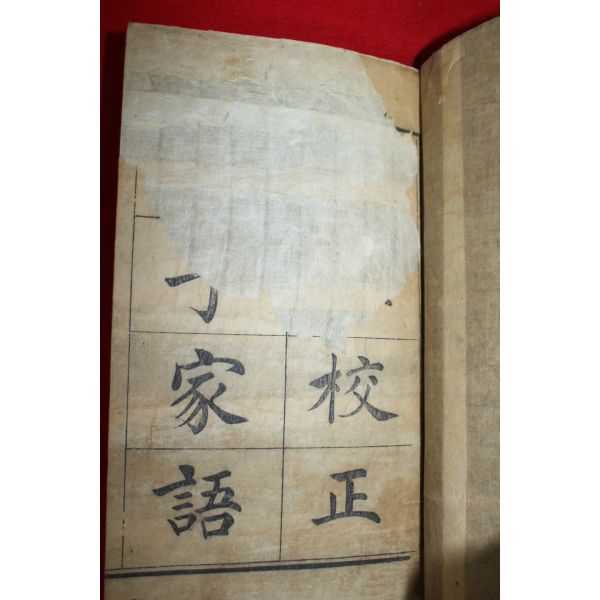 校正
家語